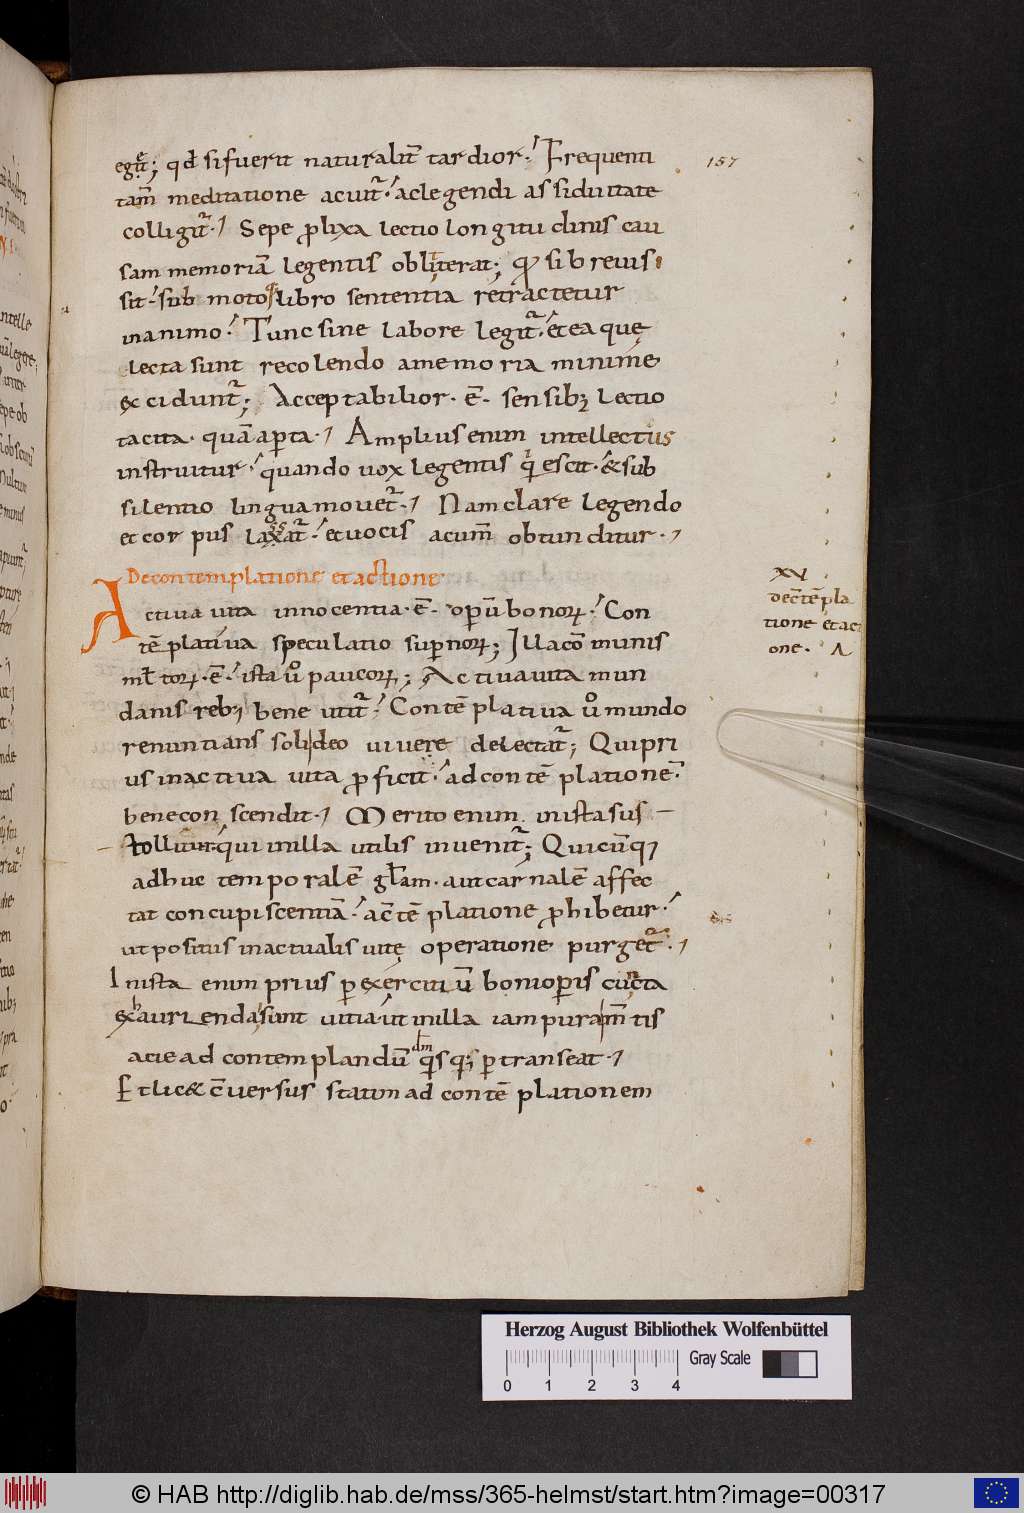 157
egꝰ; qđ si fuerit naturalit̃ tardior. Frequenti
tam̅ meditatione acuit᷑. ac legendi assiduitate
colligit᷑. Sepe ꝓlixa lectio longitudinis cau
sam memoriā legentis obliterat; Qđ si breuis
sit. sub moto libro sententia retractetur
in animo. Tunc sine labore legit᷑. et ea quę
lecta sunt recolendo a memoria minime
excidunt᷑; Acceptabilior. ē. sensibꝫ lectio
tacita. quā aꝑta. Amplius enim intellectus
instruitur. quando uox legentis qͥescit. & sub
silentio lingua mouet᷑. Nam clare legendo
et corpus laxat᷑. et uocis acum̅ obtunditur.
De contemplatione et actione
Actiua uita innocentia. ē. opū bonoꝝ. Con
tēplatiua speculatio suꝑnoꝝ; Illa cōmunis
mƚtoꝝ. ē. ista ū paucoꝝ; Actiua uita mun
danis rebꝫ bene utit᷑. Contēplatiua ū mundo
renuntians soli deo uiuere delectat᷑; Qui pri
us in actiua uita ꝓficit. ad contēplationē.
bene conscendit. Merito enim in ista sus
tollitur. qui in illa utilis inuenit᷑; Quicūqꝫ
adhuc temporalē gƚam. aut carnalē affec
tat concupiscentiā. a c̅tēplatione ꝓhibetur.
ut positus in actualis uitę operatione purget᷑.
In ista enim prius ꝑ exercitiū boni oꝑis cūcta
exhaurienda sunt uitia. ut in illa iam pura m̅tis
acie ad contemplandū dm̅ qͥsqꝫ ꝑtranseat.
Et licet c̅uersus statim ad contēplationem
XV
De c̅tēpla
tione et acti
one.
Herzog August Bibliothek Wolfenbüttel
Gray Scale
0 1 2 3 4
© HAB http://diglib.hab.de/mss/365-helmst/start.htm?image=00317